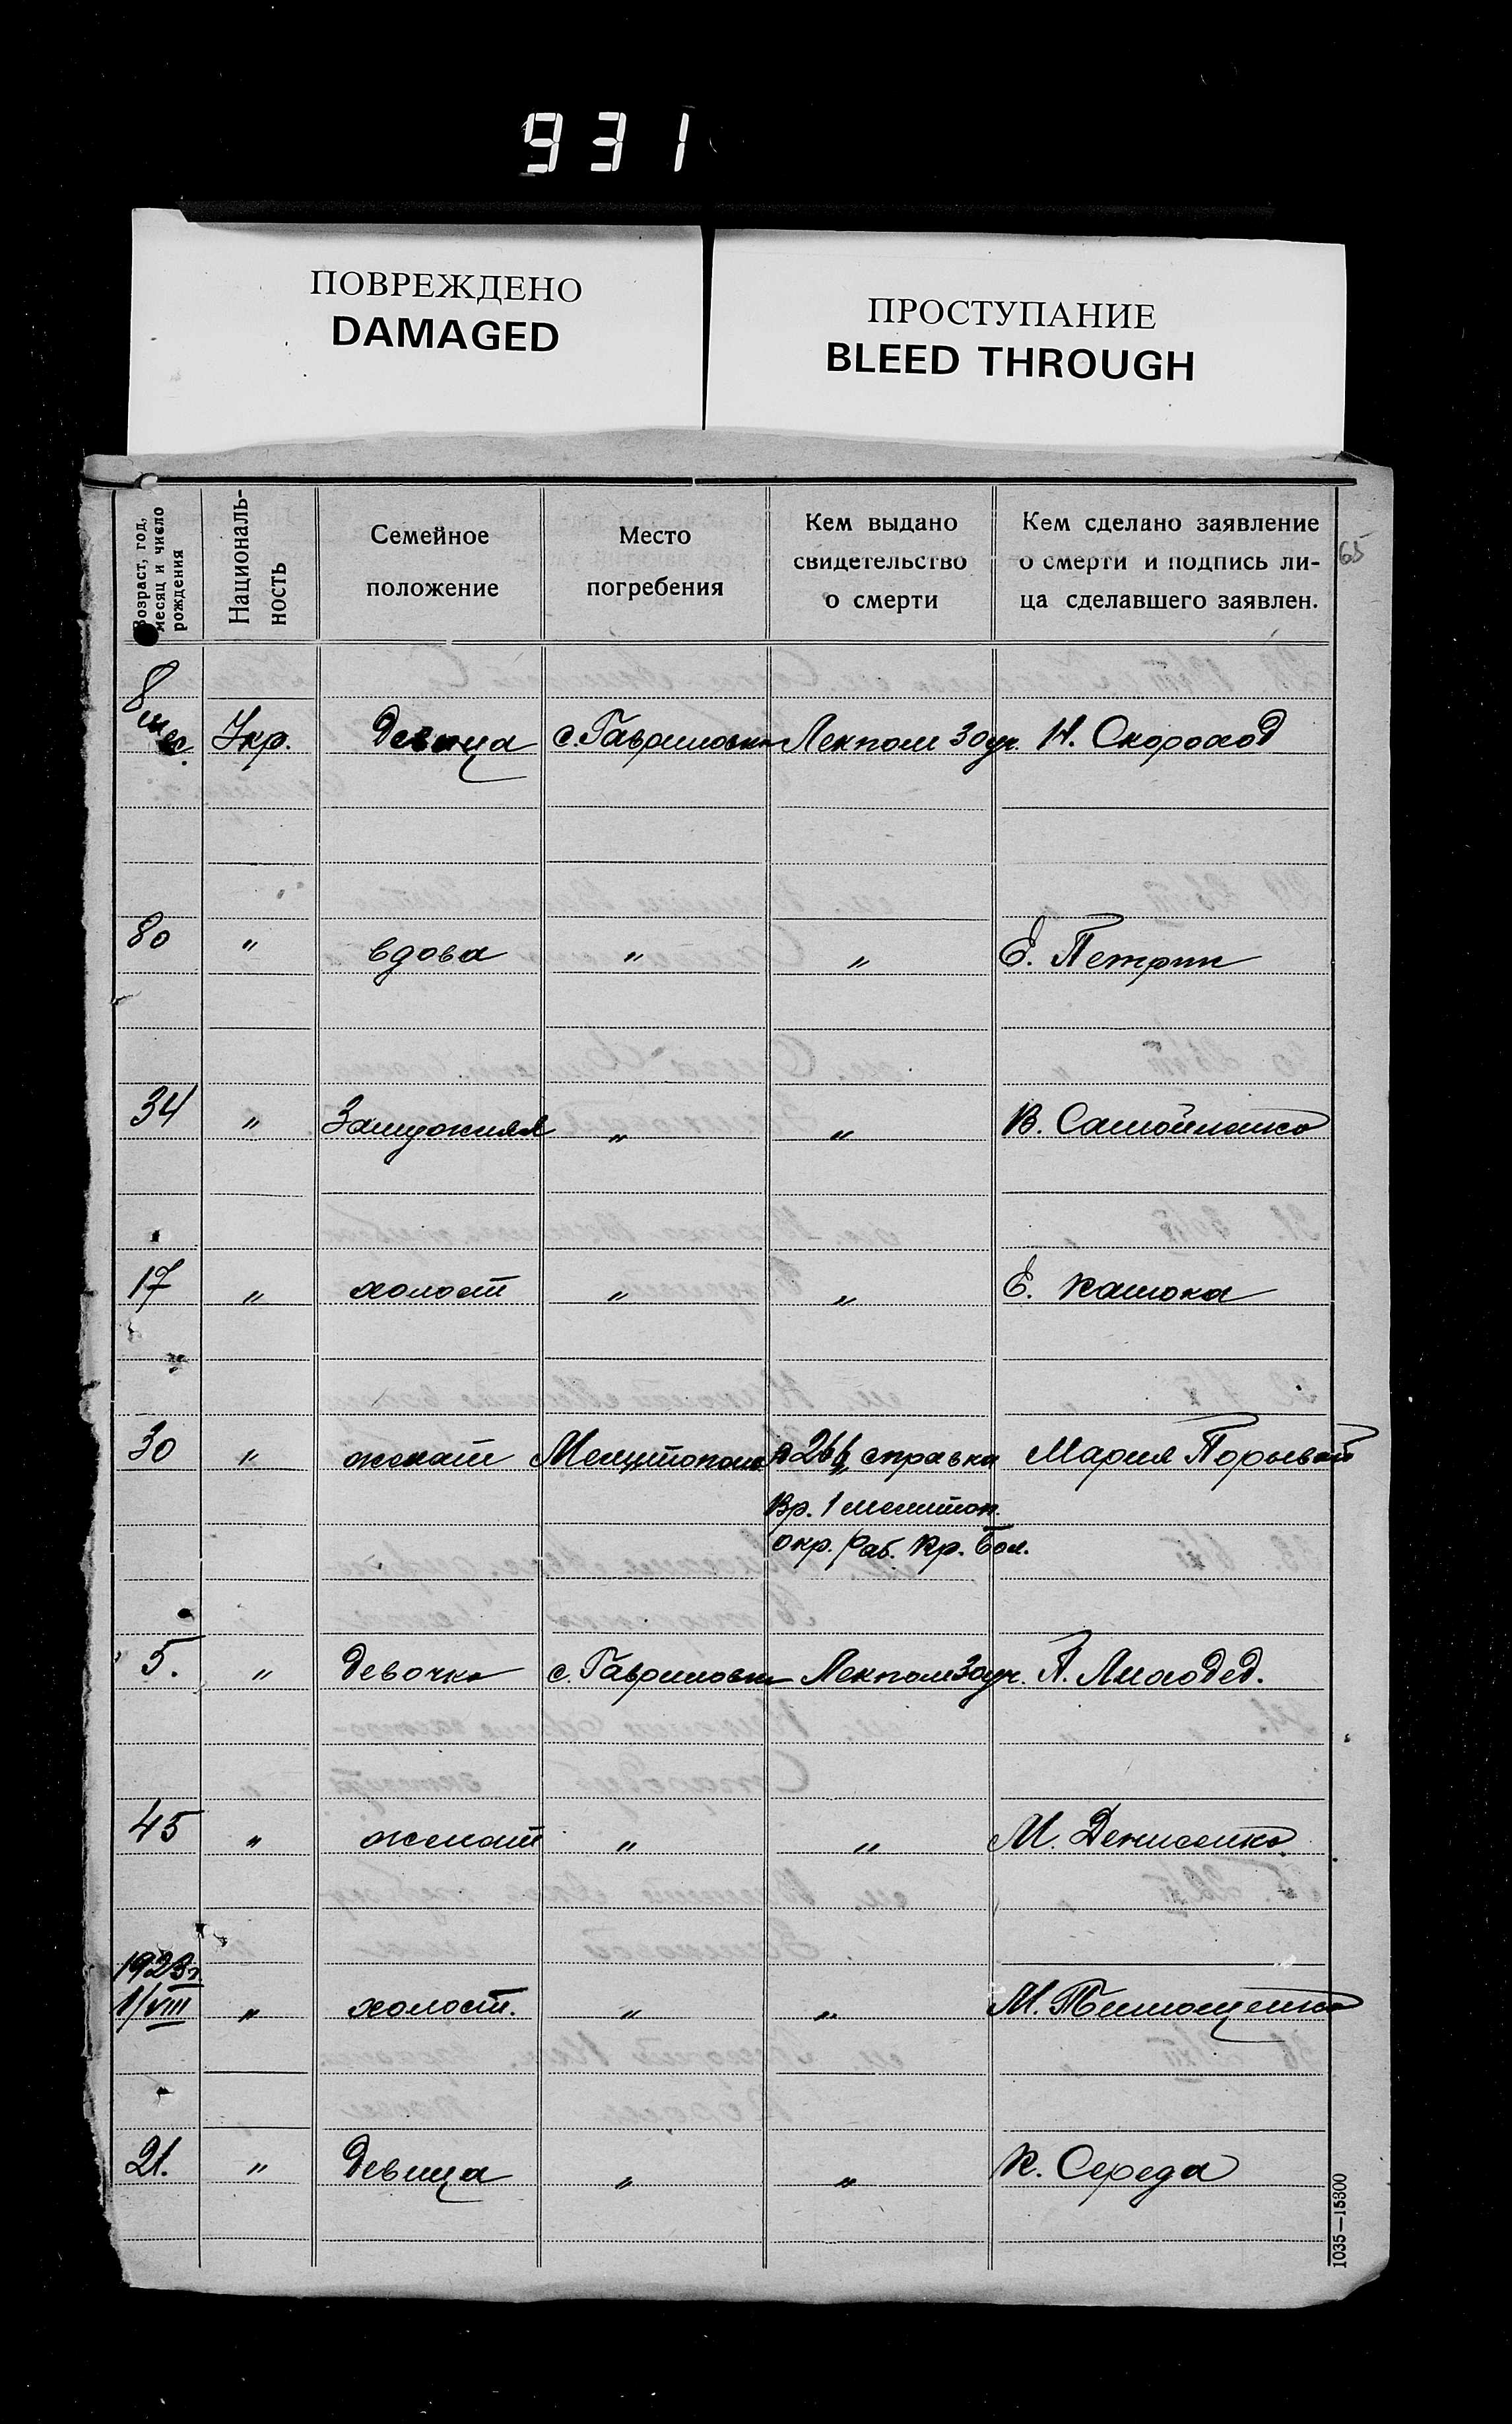 931
ПОВРЕЖДЕНО
DAMAGED
ПРОСТУПАНИЕ
BLEED THROUGH
Возраст, год,
месяц и число
рождения
Националь-
ность
Семейное
положение
Место
погребения
Кем выдано
свидетельство
о смерти
Кем сделано заявление
о смерти и подпись ли-
ца сделавшего заявлен.
65
8 мес. Укр. Девица с. Гавриловка Лекпом Зоуч. Н. Скороход
80 " вдова " " Е. Петрик
34 " Замужняя " " В. Самойленко
17 " холост " " Е.
30 " женат Мелитополь справка Мария
Вр. 1 мелитоп.
окр. Раб. Кр. Бол.
5. " Девочка с. Гавриловка Лекпом Зоуч. А.
45 " женат " " М. Денисенко
1923г.
1/VIII " холост. " " М. Тимощенко
21. " Девица " " К. Середа
1035—15300